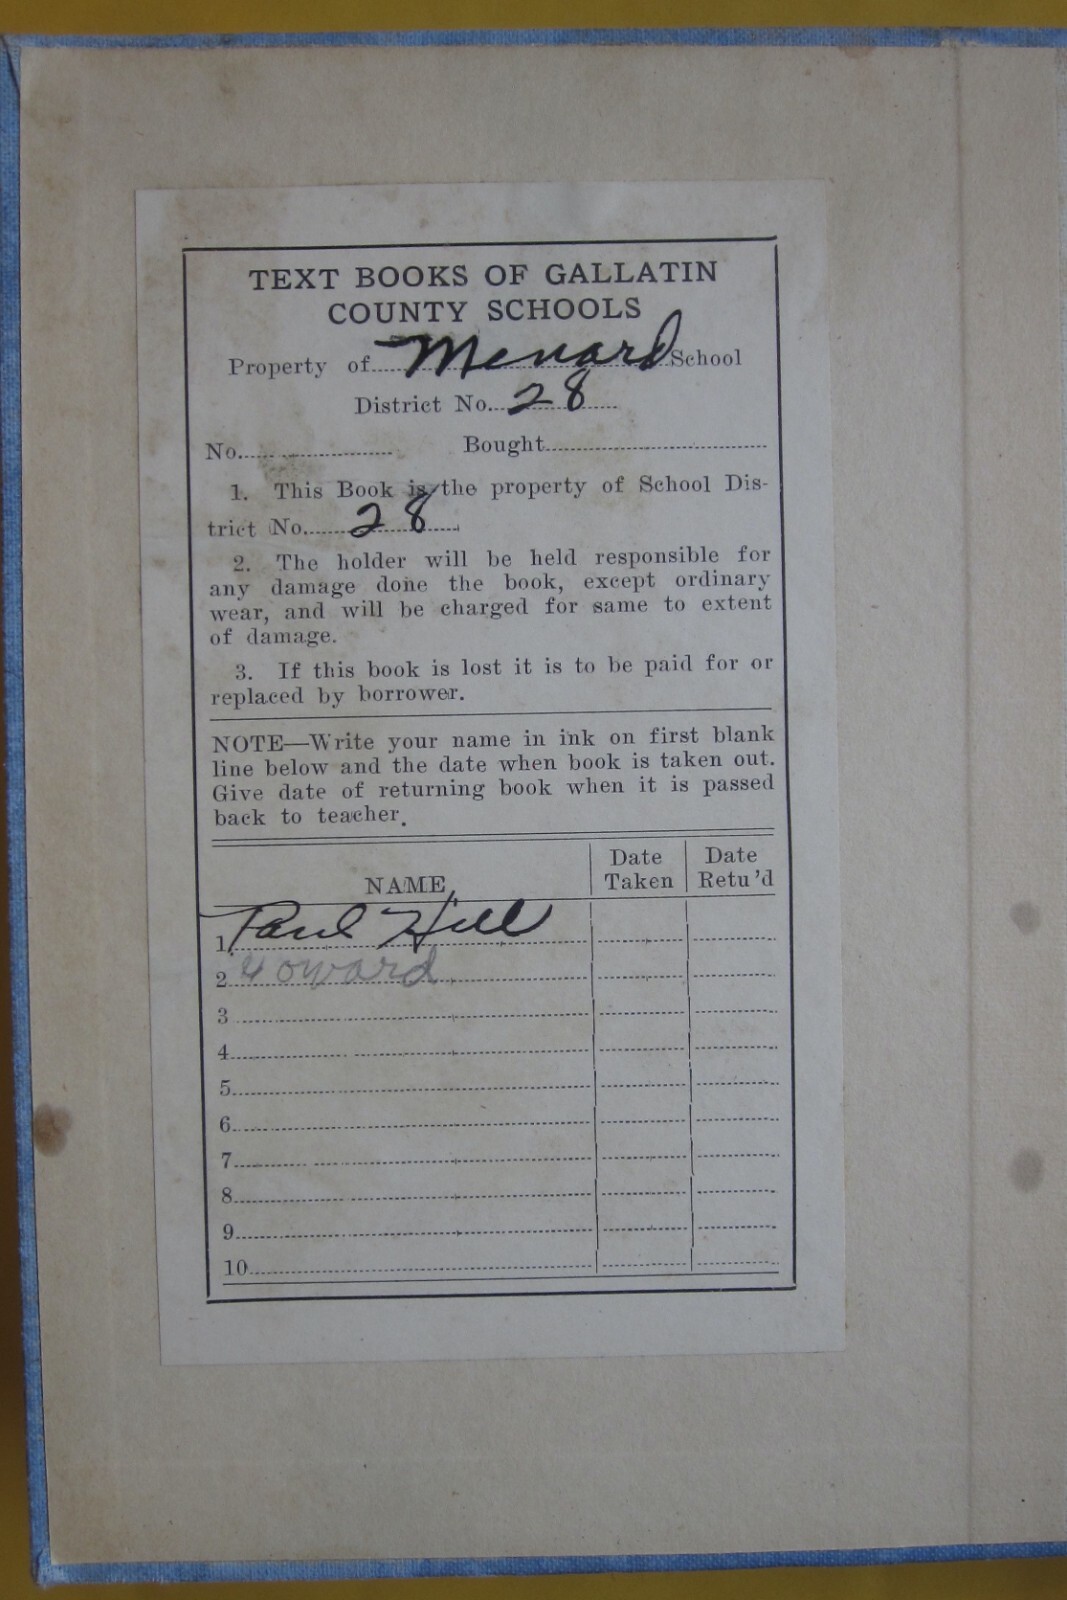 TEXT BOOKS OF GALLATIN
COUNTY SCHOOLS
Property of Menard School
District No. 28
No. Bought
1. This Book is the property of School Dis-
trict No. 28
2. The holder will be held responsible for
any damage done the book, except ordinary
wear, and will be charged for same to extent
of damage.
3. If this book is lost it is to be paid for or
replaced by borrower.
NOTE—Write your name in ink on first blank
line below and the date when book is taken out.
Give date of returning book when it is passed
back to teacher.
NAME Date Taken Date Retu'd
1. Paul Hill
2 Howard
3
4
5
6
7
8
9
10